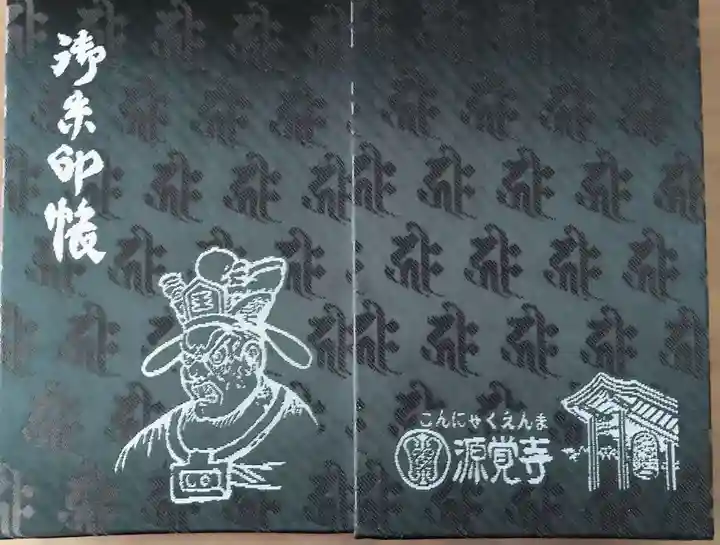 御朱印帳
王
こんにゃくえんま
源覚寺